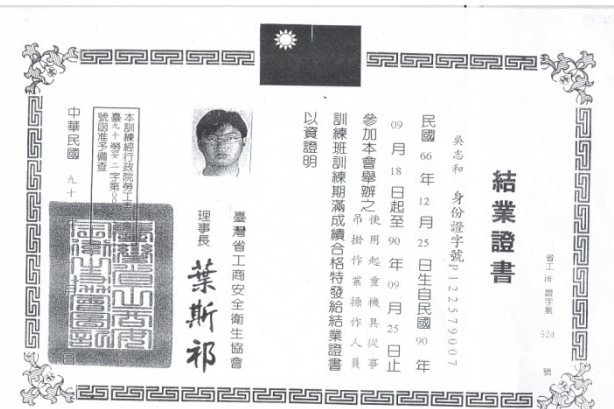 結業證書
省工 掛 證字第 524 號
吳志和 身份證字號P122579007
民國 66 年 12 月 25 日生自民國 90 年
09 月 18 日起至 90 年 09 月 25 日止
參加本會舉辦之使用起重機具從事吊掛作業操作人員
訓練班訓練期滿成績合格特發給結業證書
以資證明
臺灣省工商安全衛生協會
理事長 葉斯祁
本訓練經行政院勞工
臺九十勞安二字第
號函准予備查
中華民國 九十
日